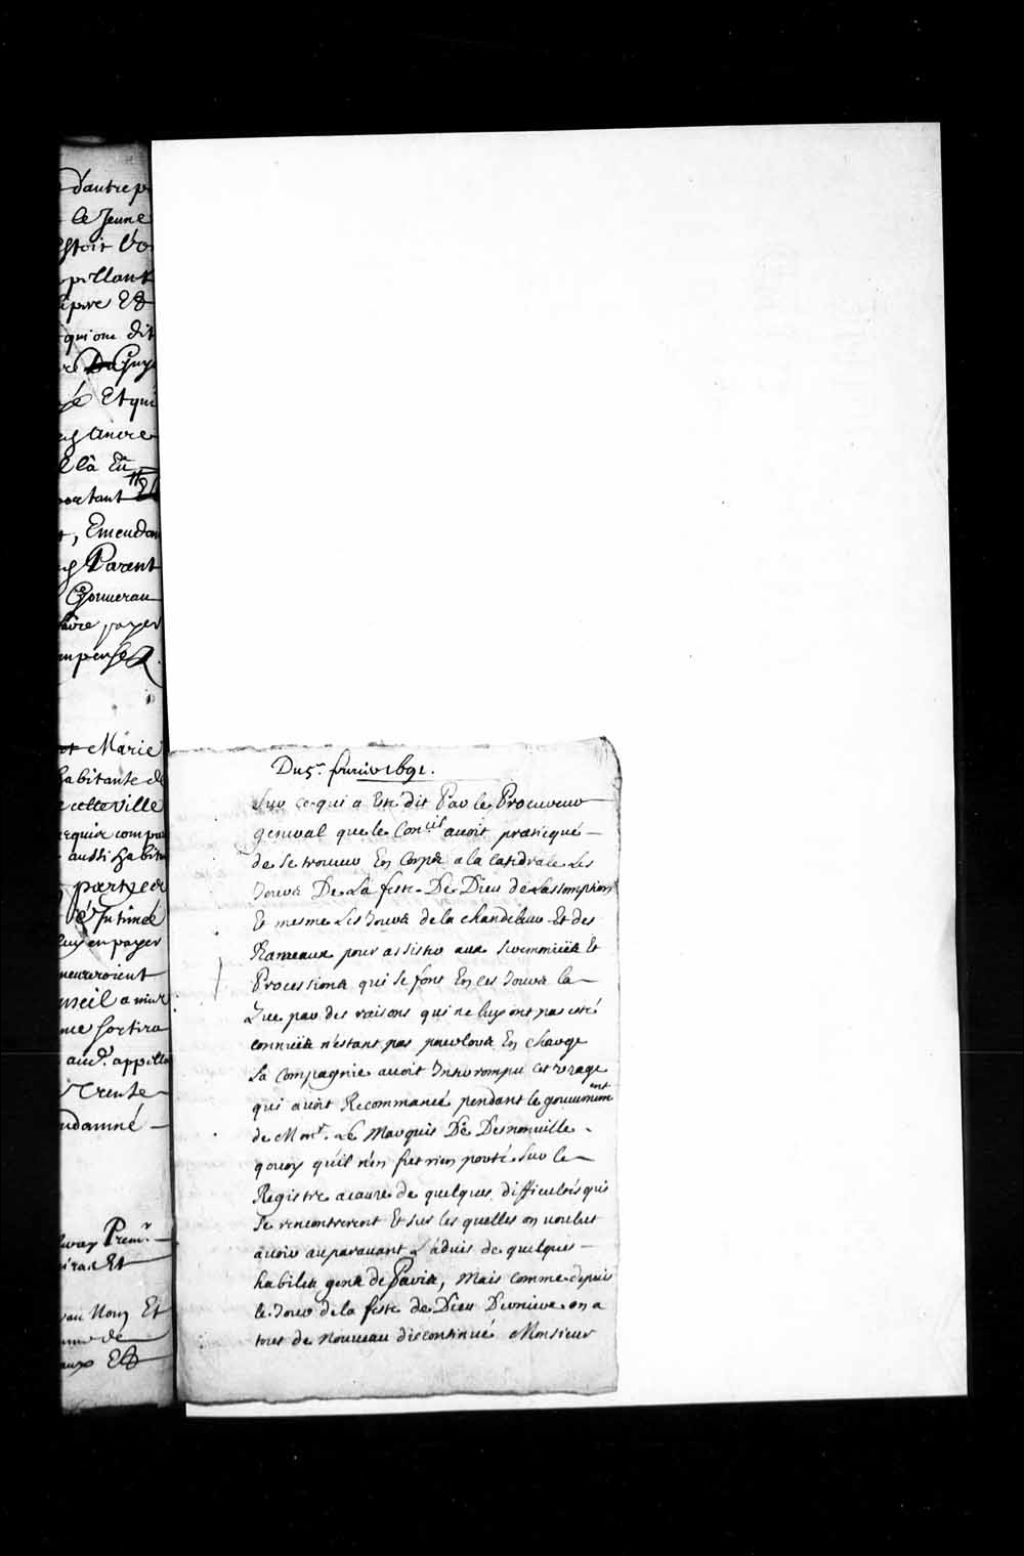 d'autre p
le Jeune
Estoit
pellant
qui ont dit
Et qui
ancre
portant
, Emendan
Parent
Gourneau
faire payer
Marie
habitante de
cette ville
requise compa
aussi habita
partye
Intimée
luy en payer
meureroient
nseil a mis
me sortira
aud. appella
Trente
ndamné
Prem.r
Et
Nouy Et
de
aux Et
Du 5.e feurier 1691.
Sur ce qui a Esté dit Par le Procureur
general que le Con.cil auoit praticqué
de se trouuer En Corps a la catedrale Les
Jours De La feste De Dieu de Lassomption
Et mesme Les Jours de la chandeleur Et des
Rameaux pour assister aux seremonies Et
Processions qui se font En ces Jours la
Que par des raisons qui ne luy ont pas esté
connues n'estant pas pour lors En charge
La Compagnie auoit Interrompu cet vzage
qui auoit Recommancé pendant le gouuernement
de Mon.r Le Marquis De Desnonuille
quoy qu'il n'en fut rien porté sur le
Registre a cause de quelques difficultés qui
se rencontrerent Et sur les quelles on voulut
auoir auparauant L'aduis de quelques
habiles gens de Paris, Mais comme depuis
le Jour de la feste de Dieu Derniere on a
tout de nouueau discontinué Monsieur